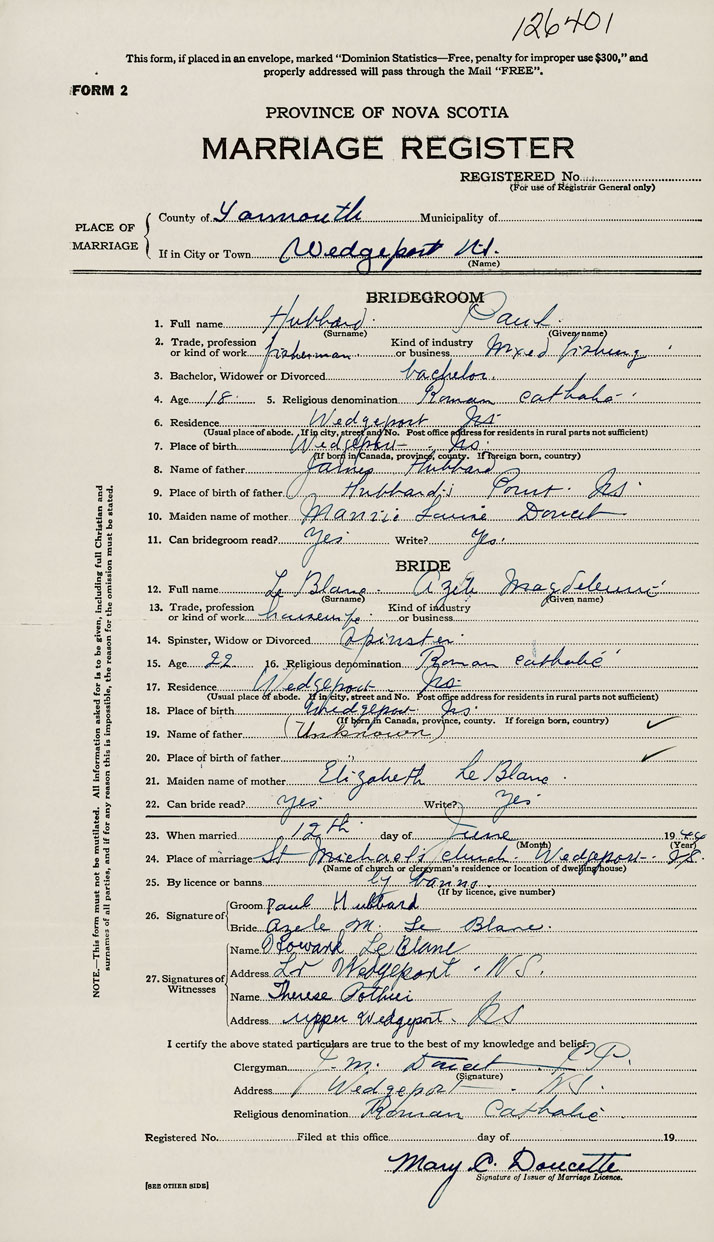 126401
This form, if placed in an envelope, marked "Dominion Statistics—Free, penalty for improper use $300," and
properly addressed will pass through the Mail "FREE".
FORM 2
PROVINCE OF NOVA SCOTIA
MARRIAGE REGISTER
REGISTERED No.
(For use of Registrar General only)
PLACE OF MARRIAGE
County of Yarmouth Municipality of
If in City or Town Wedgeport N.S.
(Name)
BRIDEGROOM
1. Full name Hubbard Paul
(Surname) (Given name)
2. Trade, profession or kind of work fisherman Kind of industry or business Mixed fishing
3. Bachelor, Widower or Divorced bachelor
4. Age 18 5. Religious denomination Roman Catholic
6. Residence Wedgeport Ns
(Usual place of abode. If in city, street and No. Post office address for residents in rural parts not sufficient)
7. Place of birth Wedgeport Ns
(If born in Canada, province, county. If foreign born, country)
8. Name of father James Hubbard
9. Place of birth of father Hubbard's Point Ns
10. Maiden name of mother Louise Doucet
11. Can bridegroom read? Yes Write? Yes
BRIDE
12. Full name Le Blanc
(Surname) (Given name)
13. Trade, profession or kind of work housewife Kind of industry or business
14. Spinster, Widow or Divorced Spinster
15. Age 22 16. Religious denomination Roman Catholic
17. Residence Wedgeport Ns
(Usual place of abode. If in city, street and No. Post office address for residents in rural parts not sufficient)
18. Place of birth Wedgeport Ns
(If born in Canada, province, county. If foreign born, country)
19. Name of father (Unknown)
20. Place of birth of father
21. Maiden name of mother Elizabeth Le Blanc
22. Can bride read? Yes Write? Yes
23. When married 12th day of June 1944
(Month) (Year)
24. Place of marriage St Michael's church Wedgeport N.S.
(Name of church or clergyman's residence or location of dwelling house)
25. By licence or banns by banns
(If by licence, give number)
26. Signature of
Groom Paul Hubbard
Bride Azele M. Le Blanc
27. Signatures of Witnesses
Name Howard Le Blanc
Address Lr Wedgeport N.S.
Name Therese Pothier
Address upper Wedgeport Ns
I certify the above stated particulars are true to the best of my knowledge and belief.
Clergyman J. M. Doucet P.P.
(Signature)
Address Wedgeport N.S.
Religious denomination Roman Catholic
Registered No. Filed at this office day of 19
Mary C. Doucette
Signature of Issuer of Marriage Licence.
[SEE OTHER SIDE]
NOTE.—This form must not be mutilated. All information asked for is to be given, including full Christian and
surnames of all parties, and if for any reason this is impossible, the reason for the omission must be stated.